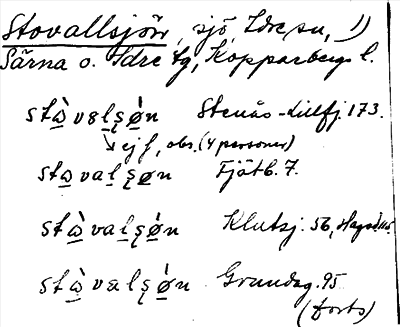 Stovallsjön, sjö, Idre sn, 1)
Särna o. Idre tg, Kopparbergs l.
stàvalşøn Stenås-Lillfj. 173.
ej f, obs. (4 personer)
stavalşøn Fjätb. 7.
stàvalşøn Klutsj. 56,
stàvalşøn Grundag. 95
(forts)